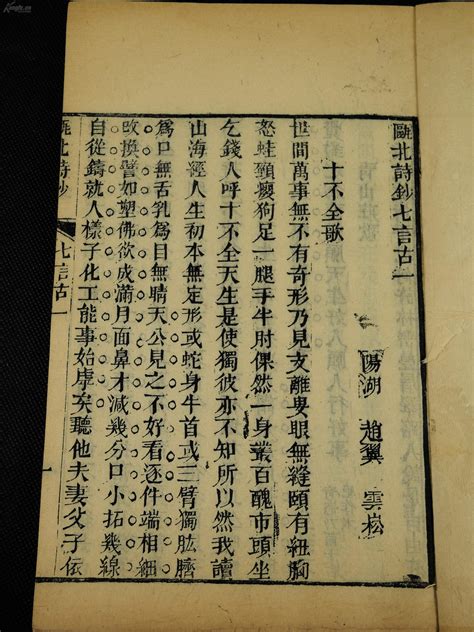 甌北詩鈔七言古一
陽湖 趙翼 雲崧
十不全歌
世間萬事無不有奇形乃見支離叟眼無縫頤有紐胸
怒蛙頸癭狗足一腿手牛肘倮然一身叢百醜市頭坐
乞錢人呼十不全天生是使獨彼亦不知所以然我讀
山海經人生初本無定形或蛇身牛首或三臂獨肱臍
為口無舌乳為目無睛天公見之不好看逐件端相細
改換譬如塑佛欲成滿月面鼻才減幾分口小拓幾線
自從鑄就人樣子化工能事始虖矣聽他夫妻父子依
甌北詩鈔
七言古一
一